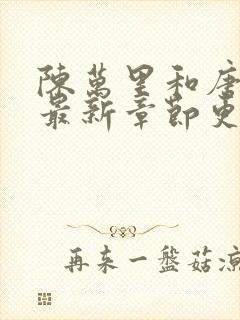 陳萬里和唐
最新章節更
再來一盤菇涼